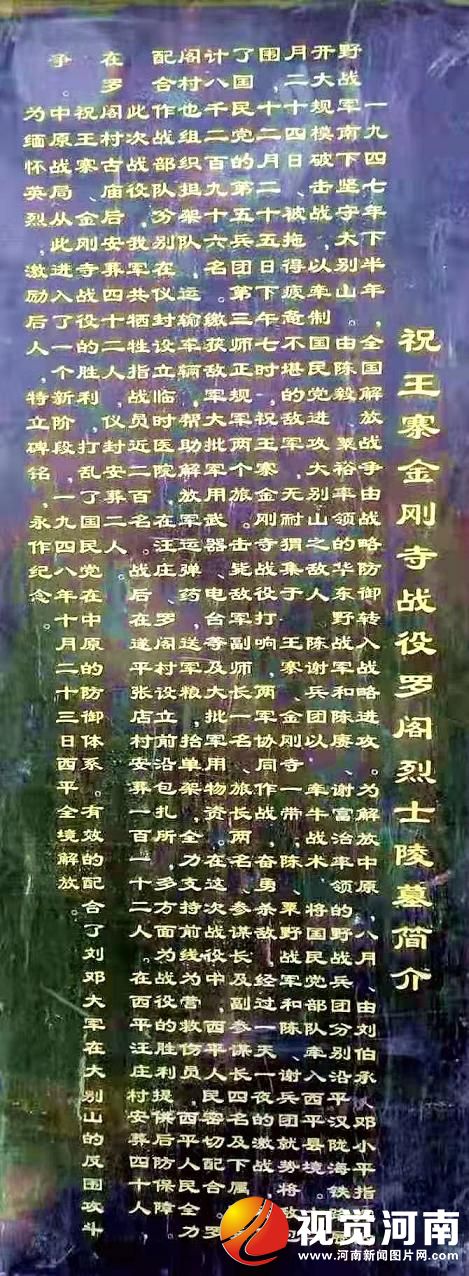 祝王寨金刚寺战役罗阁烈士陵墓简介
一九四七年下半年，全国解放战争由战略防御转入战略进攻。为解放中原，八月、由刘伯承、邓小平指
野战军南下坚守大别山，由陈毅、粟裕率领的华东野战军和陈赓、谢富治率领的野战兵团分别沿平汉陇海铁路
开大规模破击战，以牵制国民党进攻大别山之敌人，陈谢兵团以牵牛战术，将国民党部队牵入西平县境。
月二十四日，被拖得疲惫不堪的敌军，无耐猬集于王寨、金刚寺一带，陈、粟野战军和陈、谢兵团就势将敌
围，十二月二十五日下午七时，祝王寨金刚寺战役打响，两军协同作战，奋勇杀敌，经过一天一夜的激战，
了国民党的第五兵团第三师正规军两个旅。击毙敌军副师长一名、旅长两名、参谋长及副参谋长四名及下属
计八千二百九十六名。缴获敌军大批军用武器、电台等及大批军用物资。在这次战役中，西平人民密切配合。罗
阁村也组织担架队、运输车辆，帮助解放军运弹药、送军粮、抬单架，全力支持前线为战役营救伤员。西平人民全力
配合作战部队分别在仪封设立临时医院，在汪庄、罗阁村设立前沿包扎所，多方面为战役的胜利提保后防保障。
此次战役，我军共牺牲指战员近二百名。战后在遂平张店村安葬一百一十二人。在西平汪庄村安葬四十人
在罗阁村古庙后安葬四十二人，仪封安葬二人。
祝王寨、金刚寺战役的胜利，打乱了国民党在中原的防御体系。有效的配合了刘邓大军在大别山的反围攻斗
争。中原战局从此进入了一个新阶段，一九四八年十月二十三日西平全境解放。
为缅怀英烈，激励后人，特立碑铭，永作纪念。
视觉河南
www.河南新闻图片网.com